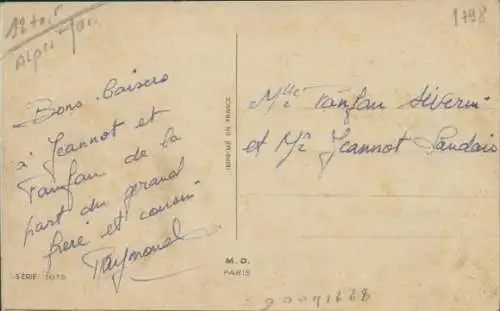 Alpes-Mar.
1798
Bons baisers
à Jeannot et
Fanfan de la
part du grand
frère et cousin
Raymond
Mlle Fanfan Séverin
et Mr Jeannot
IMPRIMÉ EN FRANCE
SÉRIE 1078
M. D.
PARIS